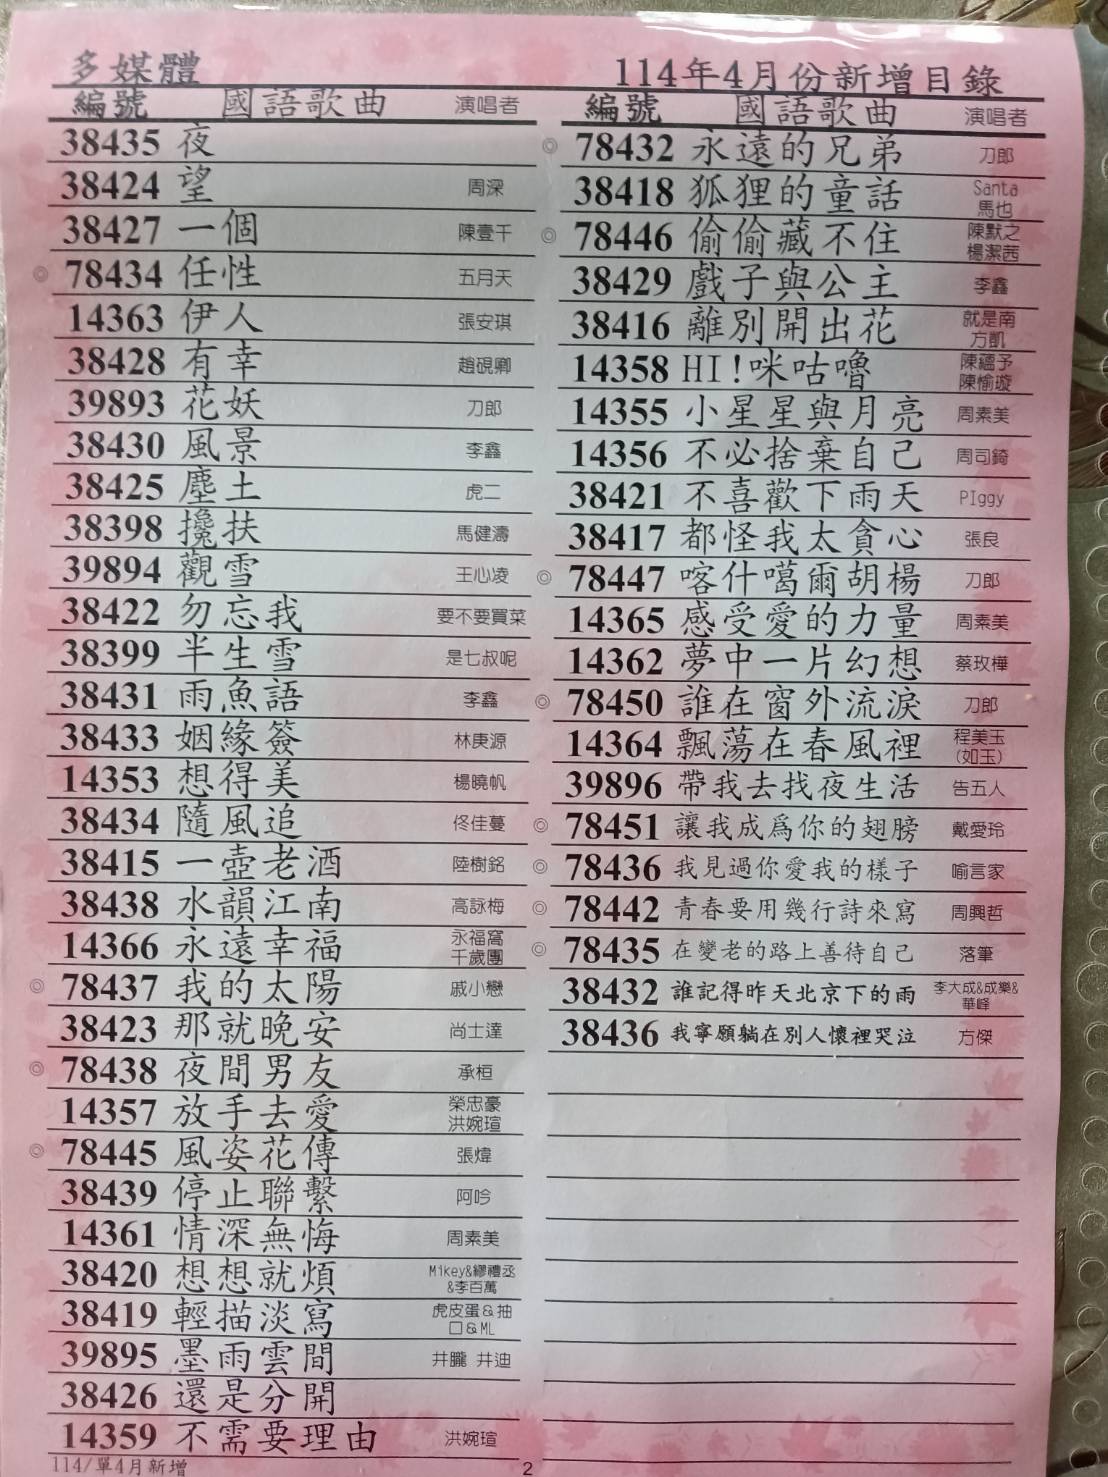 多媒體
114年4月份新增目錄
編號 國語歌曲 演唱者
38435 夜
38424 望 周深
38427 一個 陳壹千
◎ 78434 任性 五月天
14363 伊人 張安琪
38428 有幸 趙硯卿
39893 花妖 刀郎
38430 風景 李鑫
38425 塵土 虎二
38398 攙扶 馬健濤
39894 觀雪 王心凌
38422 勿忘我 要不要買菜
38399 半生雪 是七叔呢
38431 雨魚語 李鑫
38433 姻緣簽 林庚源
14353 想得美 楊曉帆
38434 隨風追 佟佳蔓
38415 一壺老酒 陸樹銘
38438 水韻江南 高詠梅
14366 永遠幸福 永福窩
千歲團
◎ 78437 我的太陽 戚小戀
38423 那就晚安 尚士達
◎ 78438 夜間男友 承桓
14357 放手去愛 榮忠豪
洪婉瑄
◎ 78445 風姿花傳 張煒
38439 停止聯繫 阿吟
14361 情深無悔 周素美
38420 想想就煩 Mikey&繆禮丞
&李百萬
38419 輕描淡寫 虎皮蛋&抽
口&ML
39895 墨雨雲間 井朧 井迪
38426 還是分開
14359 不需要理由 洪婉瑄
編號 國語歌曲 演唱者
◎ 78432 永遠的兄弟 刀郎
38418 狐狸的童話 Santa
馬也
◎ 78446 偷偷藏不住 陳默之
楊潔茜
38429 戲子與公主 李鑫
38416 離別開出花 就是南
方凱
14358 HI!咪咕嚕 陳繻予
陳愉璇
14355 小星星與月亮 周素美
14356 不必捨棄自己 周司錡
38421 不喜歡下雨天 PIggy
38417 都怪我太貪心 張良
◎ 78447 喀什噶爾胡楊 刀郎
14365 感受愛的力量 周素美
14362 夢中一片幻想 蔡玫樺
◎ 78450 誰在窗外流淚 刀郎
14364 飄蕩在春風裡 程美玉
(如玉)
39896 帶我去找夜生活 告五人
◎ 78451 讓我成為你的翅膀 戴愛玲
◎ 78436 我見過你愛我的樣子 喻言家
◎ 78442 青春要用幾行詩來寫 周興哲
◎ 78435 在變老的路上善待自己 落筆
38432 誰記得昨天北京下的雨 李大成&成樂&
華峰
38436 我寧願躺在別人懷裡哭泣 方傑
114/單4月新增
2